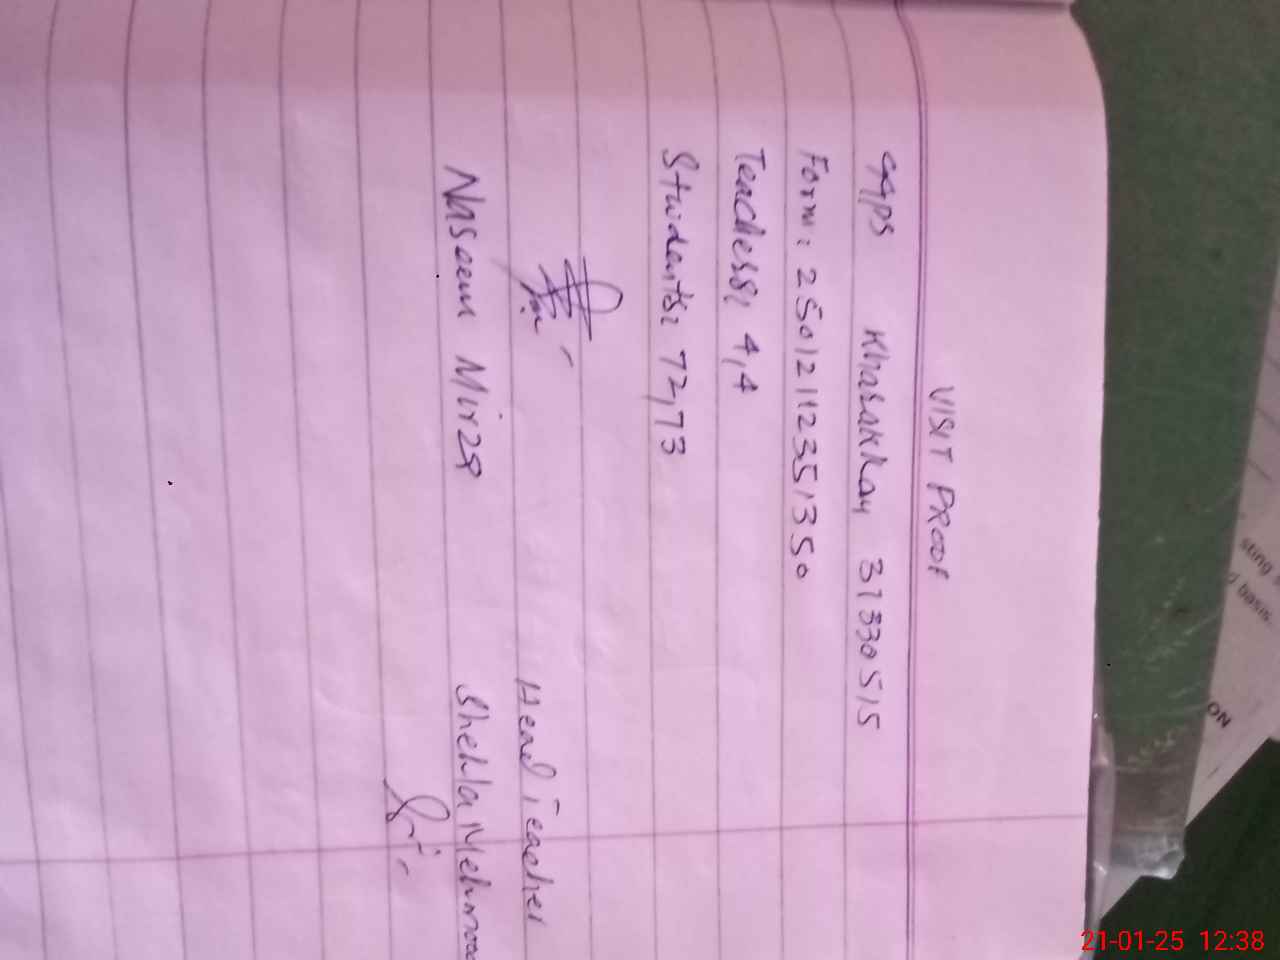 VISIT PROOF
GGPS Kharakkay 31330515
Form: 25012112351350
Teachers: 4,4
Students: 72,73
Head Teacher
Naseem Mirza
Shehla Mehmoo
sting
d basis
ON
21-01-25 12:38